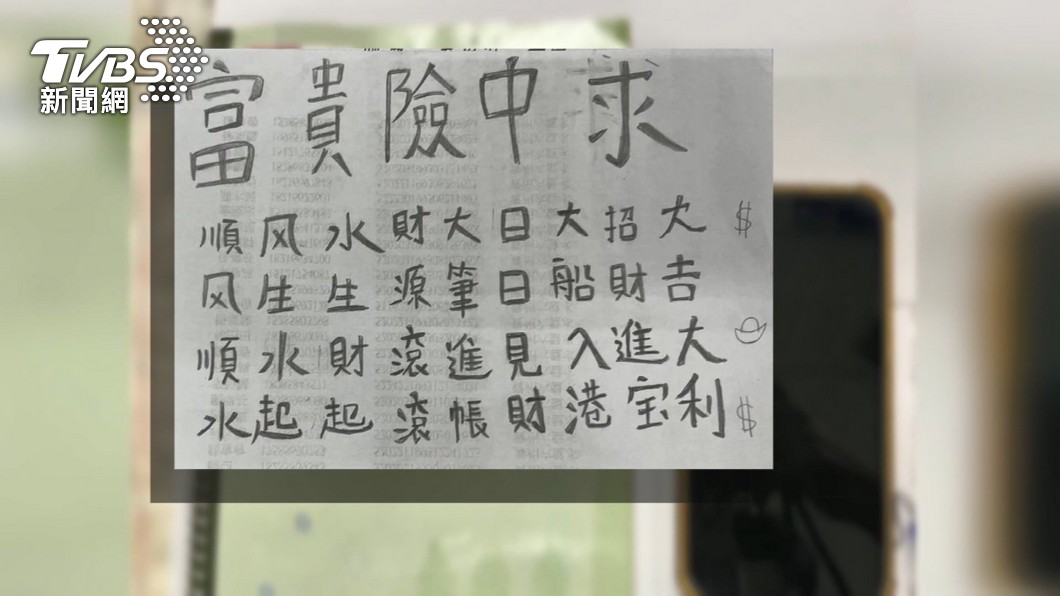 TVBS
新聞網
富貴險中求
順风順水
风生水起
水生財起
財源滾滾
大筆進帳
日日見財
大船入港
招財進宝
大吉大利
$
$